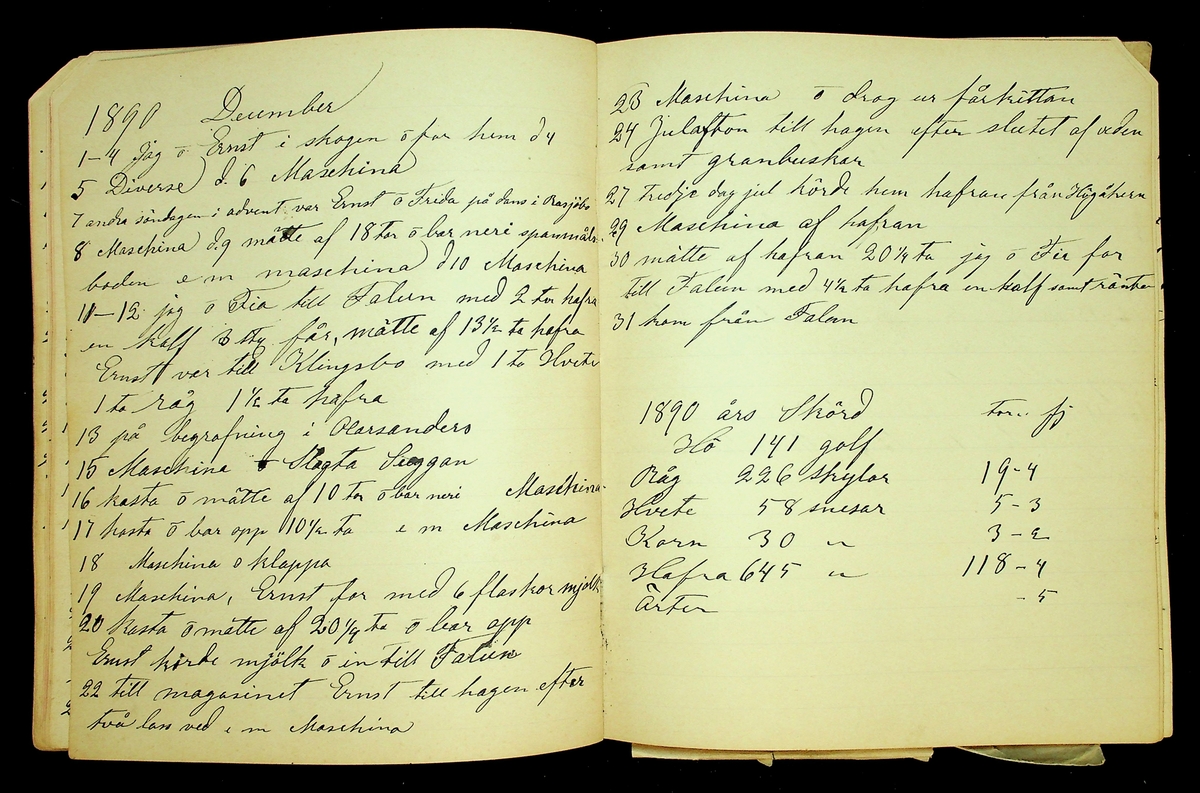 1890 December
1-4 Jag o Ernst i skogen o for hem d 4
5 Diverse d. 6 Maschina
7 andra söndagen i advent var Ernst o Frida på dans i
8 Maschina d.9 mätte af 18 tor o bar neri spanmåls-
boden e m maschina d10 Maschina
11-12 jag o Fia till Falun med 2 tor hafra
en kalf 3 sty får, mätte af 13 1/2 ta hafra
Ernst var till Klingsbo med 1 ta Hvete
1 ta råg 1 1/2 ta hafra
13 på begrafning i Olarsanders
15 Maschina o Slagta Suggan
16 kasta o mätte af 10 tor o bar neri Maschina
17 kasta o bar opp 10 1/2 ta e m Maschina
18 Maschina o klappa
19 Maschina, Ernst for med 6 flaskor mjölk
20 kasta o mätte af 20 1/4 ta o bar opp
Ernst körde mjölk o in till Falun
22 till magasinet Ernst till hagen efter
två lass ved e m Maschina
23 Maschina o drog ur fårkittan
24 Julafton till hagen efter slutet af veden
samt granbuskar
27 tredje dag jul körde hem hafran från
29 Maschina af hafran
30 mätte af hafran 20 1/4 ta jag o Fia for
till Falun med 4 1/2 ta hafra en kalf samt räntan
31 kom från Falun
1890 års Skörd tor fj
Hö 141 golf
Råg 226 skylar 19-4
Hvete 58 snesar 5-3
Korn 30 " 3-2
Hafra 645 " 118-4
Ärter -5